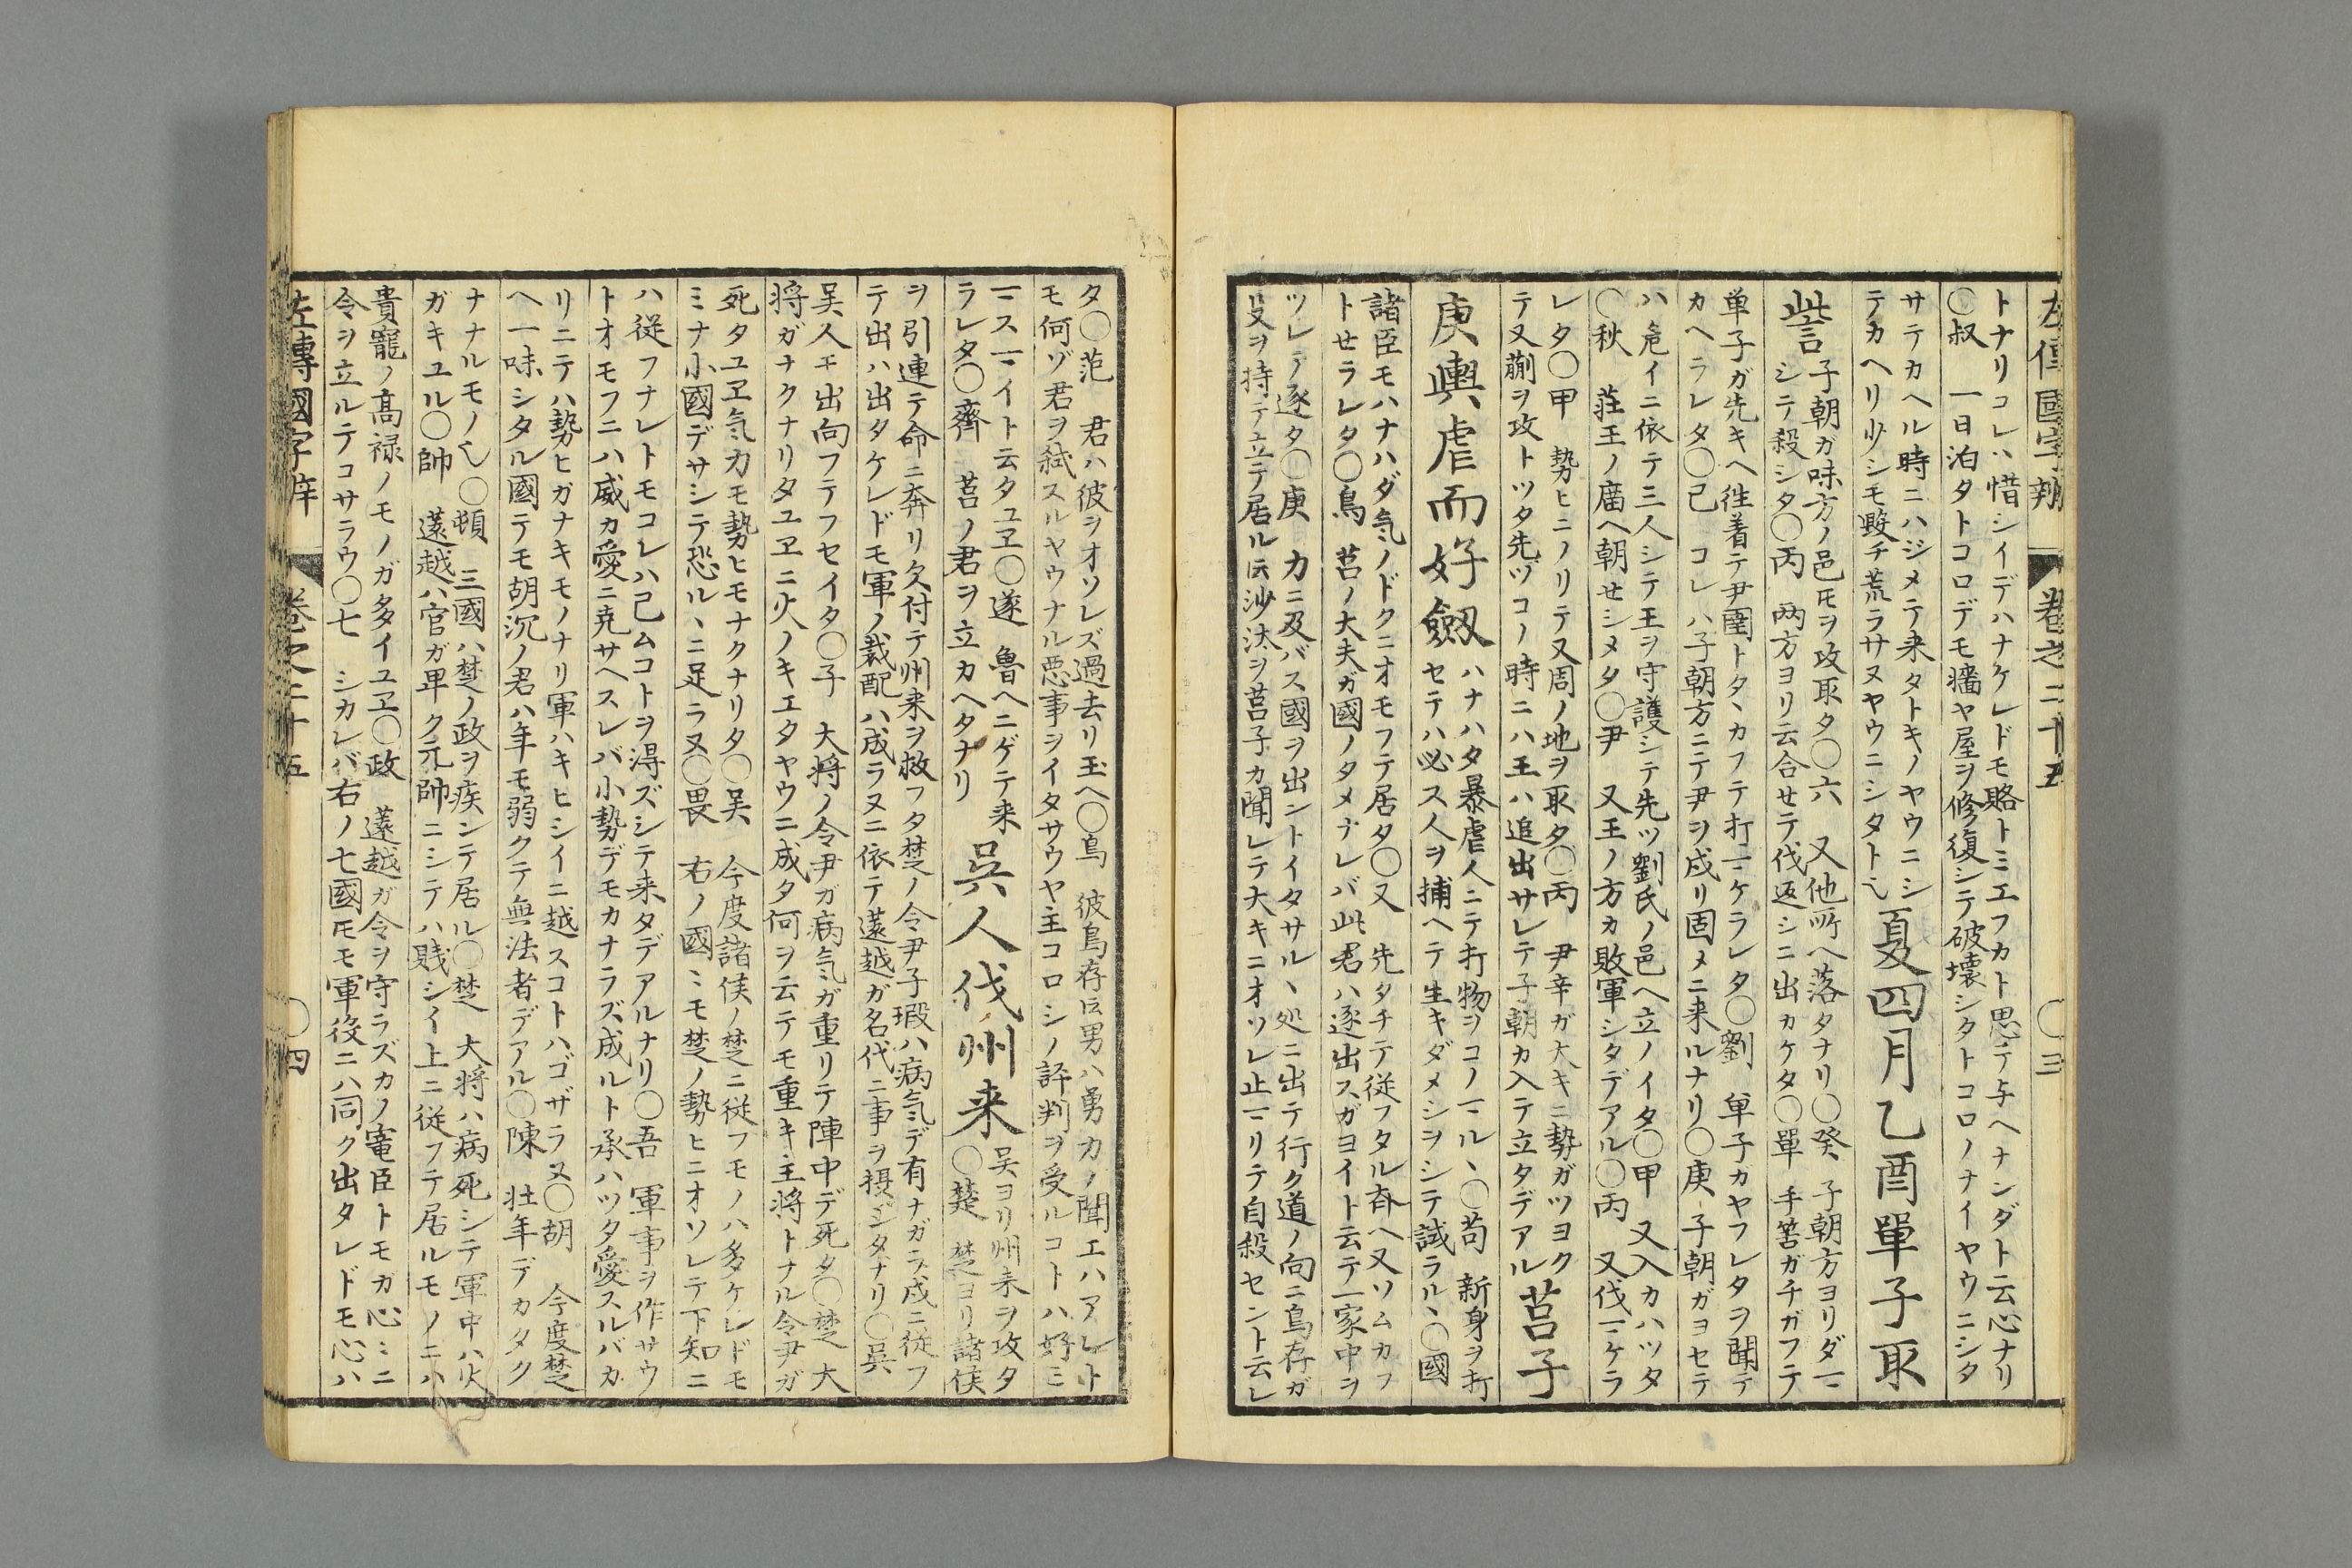 左傳國字辯 卷之二十五 〇三
トナリコレハ惜シイデハナケレドモ賂トミエフカト思テ与ヘナンダト云心ナリ
〇叔 一日泊タトコロデモ墻ヤ屋ヲ修復シテ破壊シタトコロノナイヤウニシタ
サテカヘル時ニハジメテ来タトキノヤウニシ
テカヘリ少シモ毀チ荒ラサヌヤウニシタト乀
夏四月乙酉單子取
訾
子朝ガ味方ノ邑𪜈ヲ攻取タ〇六 又他所ヘ落タナリ〇癸 子朝方ヨリダマ
シテ殺シタ〇丙 両方ヨリ云合セテ伐返シニ出カケタ〇單 手筈ガチガフテ
単子ガ先キヘ徃着テ尹圉トタヽカフテ打マケラレタ〇劉 単子カヤフレタヲ聞テ
カヘラレタ〇己 コレハ子朝方ニテ尹ヲ戍リ固メニ来ルナリ〇庚 子朝ガヨセテ
ハ危イニ依テ三人シテ王ヲ守護シテ先ツ劉氏ノ邑ヘ立ノイタ〇甲 又入カハツタ
〇秋 荘王ノ廟ヘ朝セシメタ〇尹 又王ノ方カ敗軍シタデアル〇丙 又伐マケラ
レタ〇甲 勢ヒニノリテ又周ノ地ヲ取タ〇丙 尹辛ガ大キニ勢ガツヨク
テ又蒯ヲ攻トツタ先ツコノ時ニハ王ハ追出サレテ子朝カ入テ立タデアル
莒子
庚輿虐而好劔
ハナハタ暴虐人ニテ打物ヲコノマルヽ〇苟 新身ヲ打
セテハ必ス人ヲ捕ヘテ生キダメシヲシテ試ラルヽ〇國
諸臣モハナハダ気ノドクニオモフテ居タ〇又 先タチテ従フタル斉ヘ又ソムカフ
トセラレタ〇烏 莒ノ大夫ガ國ノタメナレバ此君ハ逐出スガヨイト云テ一家中ヲ
ツレテ逐タ〇庚 力ニ及バス國ヲ出ントイタサルヽ処ニ出テ行ク道ノ向ニ烏存ガ
殳ヲ持テ立テ居ル𪜈沙汰ヲ莒子カ聞レテ大キニオソレ止マリテ自殺セント云レ
タ〇苑 君ハ彼ヲオソレズ過去リ玉ヘ〇烏 彼烏存𪜈男ハ勇力ノ聞エハアレト
モ何ゾ君ヲ弑スルヤウナル悪事ヲイタサウヤ主コロシノ評判ヲ受ルコトハ好ミ
マスマイト云タユヱ〇遂 魯ヘニゲテ来
ラレタ〇齊 莒ノ君ヲ立カヘタナリ
吳人伐州来
吴ヨリ州来ヲ攻タ
〇楚 楚ヨリ諸侯
ヲ引連テ命ニ奔リ欠付テ州来ヲ救フタ楚ノ令尹子瑕ハ病気デ有ナガラ戍ニ従フ
テ出ハ出タケレドモ軍ノ裁配ハ成ラヌニ依テ薳越ガ名代ニ事ヲ摂シタナリ〇吴
吴人ヰ出向フテフセイタ〇子 大将ノ令尹ガ病気ガ重リテ陣中デ死タ〇楚 大
将ガナクナリタユヱニ火ノキエタヤウニ成タ何ヲ云テモ重キ主将トナル令尹ガ
死タユヱ気力モ勢ヒモナクナリタ〇吴 今度諸侯ノ楚ニ従フモノハ多ケレドモ
ミナ小國デサシテ恐ルヽニ足ラヌ〇畏 右ノ國ミモ楚ノ勢ヒニオソレテ下知ニ
ハ従フナレトモコレハ己ムコトヲ得ズシテ来タデアルナリ〇吾 軍事ヲ作サウ
トオモフニハ威カ愛ニ尭サヘスレバ小勢デモカナラズ成ルト承ハツタ愛スルバカ
リニテハ勢ヒガナキモノナリ軍ハキヒシイニ越スコトハゴザラヌ〇胡 今度楚
ヘ一味シタル國テモ胡沉ノ君ハ年モ弱クテ無法者デアル〇陳 壮年デカタク
ナナルモノ乀〇頓 三國ハ楚ノ政ヲ疾ンテ居ル〇楚 大将ハ病死シテ軍中ハ火
ガキユル〇帥 薳越ハ官ガ卑ク元帥ニシテハ賎シイ上ニ従フテ居ルモノニハ
貴寵ノ髙禄ノモノガ多イユヱ〇政 薳越ガ令ヲ守ラズカノ寵臣トモガ心ミニ
令ヲ立ルテコサラウ〇七 シカレバ右ノ七國𪜈モ軍役ニハ同ク出タレドモ心ハ
左傳國字辯 卷之二十五 〇四